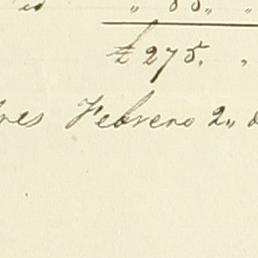 " 80 " "
£ 275. "
res Febrero 2 "